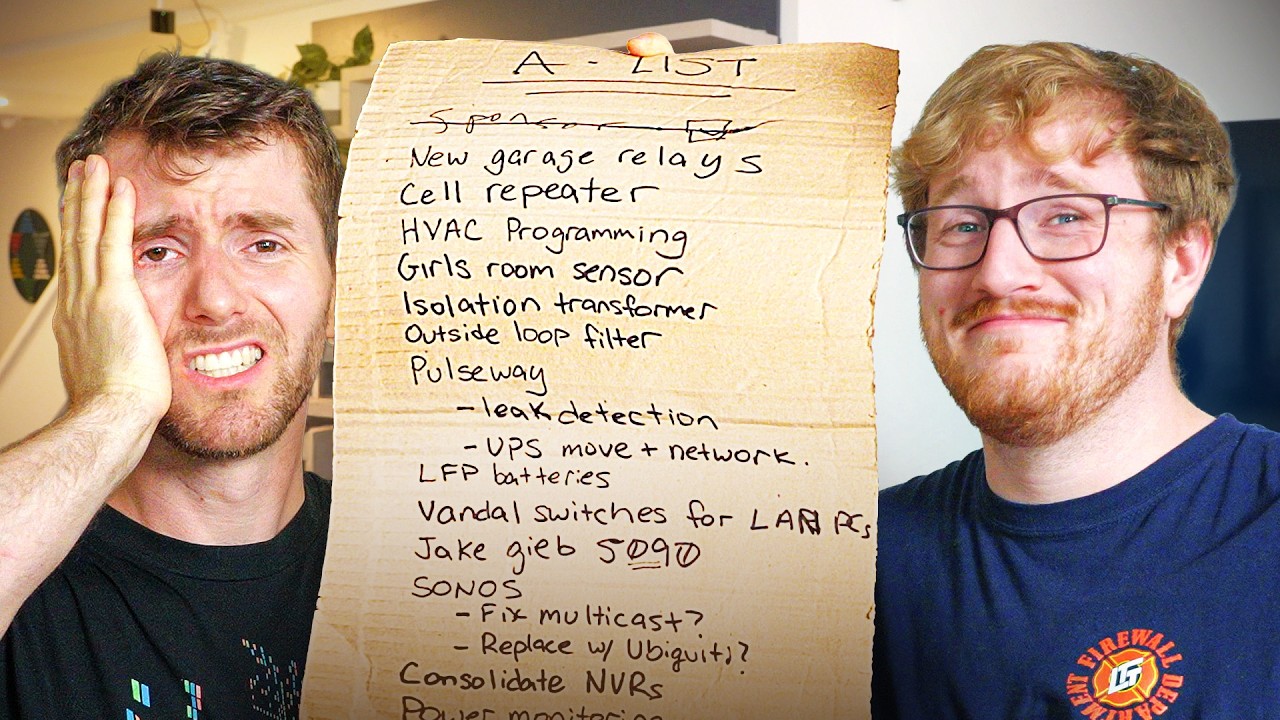 A - LIST
Sponsor
New garage relays
Cell repeater
HVAC Programming
Girls room sensor
Isolation transformer
Outside loop filter
Pulseway
- leak detection
- UPS move + network.
LFP batteries
Vandal switches for LAN PCs
Jake gieb 5090
SONOS
- Fix multicast?
- Replace w/ Ubiquiti?
Consolidate NVRs
Power monitoring
FIREWALL DEPARTMENT